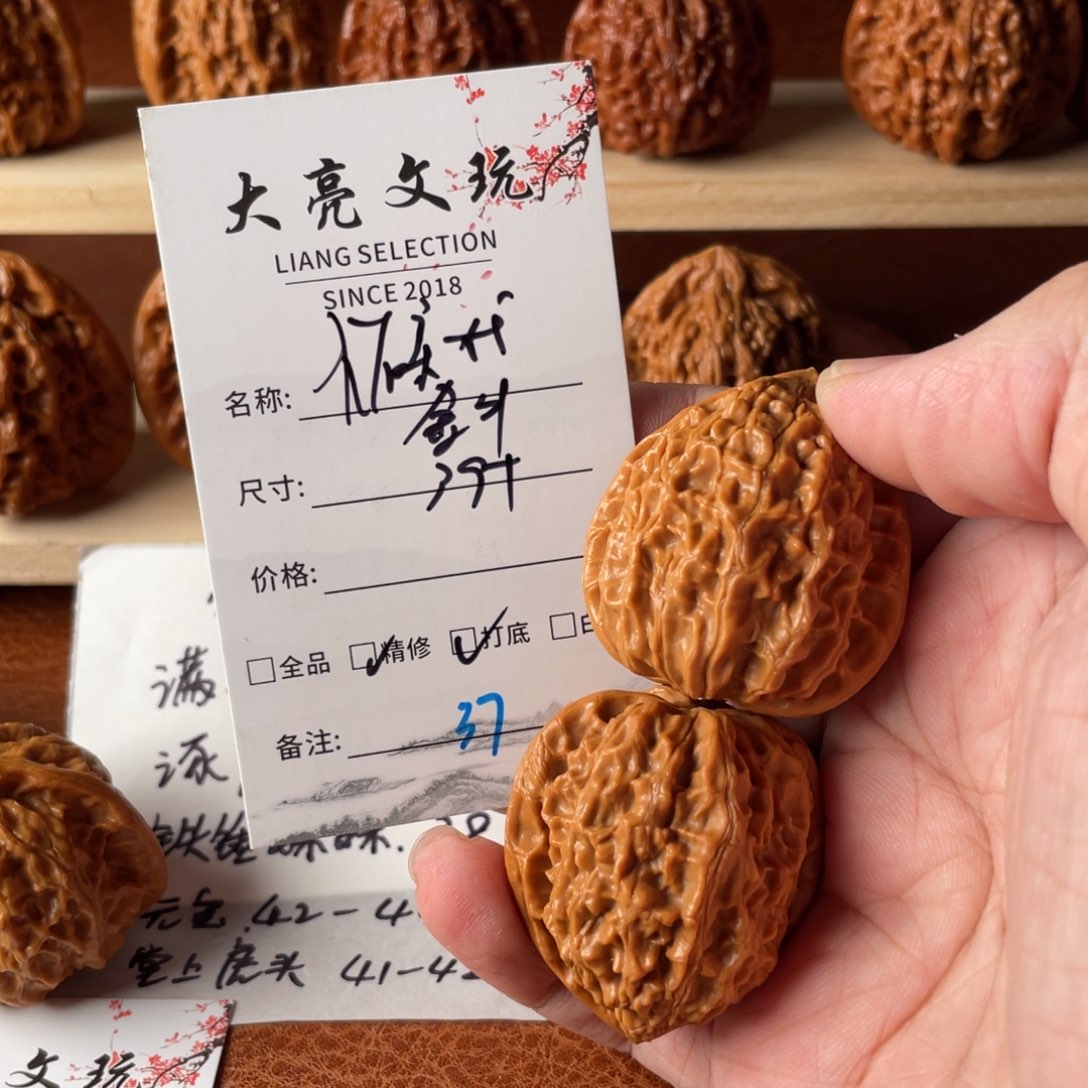 大亮文玩
LIANG SELECTION
SINCE 2018
名称:
金斗
尺寸: 39+
价格:
全品 精修 打底 白
备注: 37
满
涿
元宝. 42-4
堂上虎头 41-4
文玩